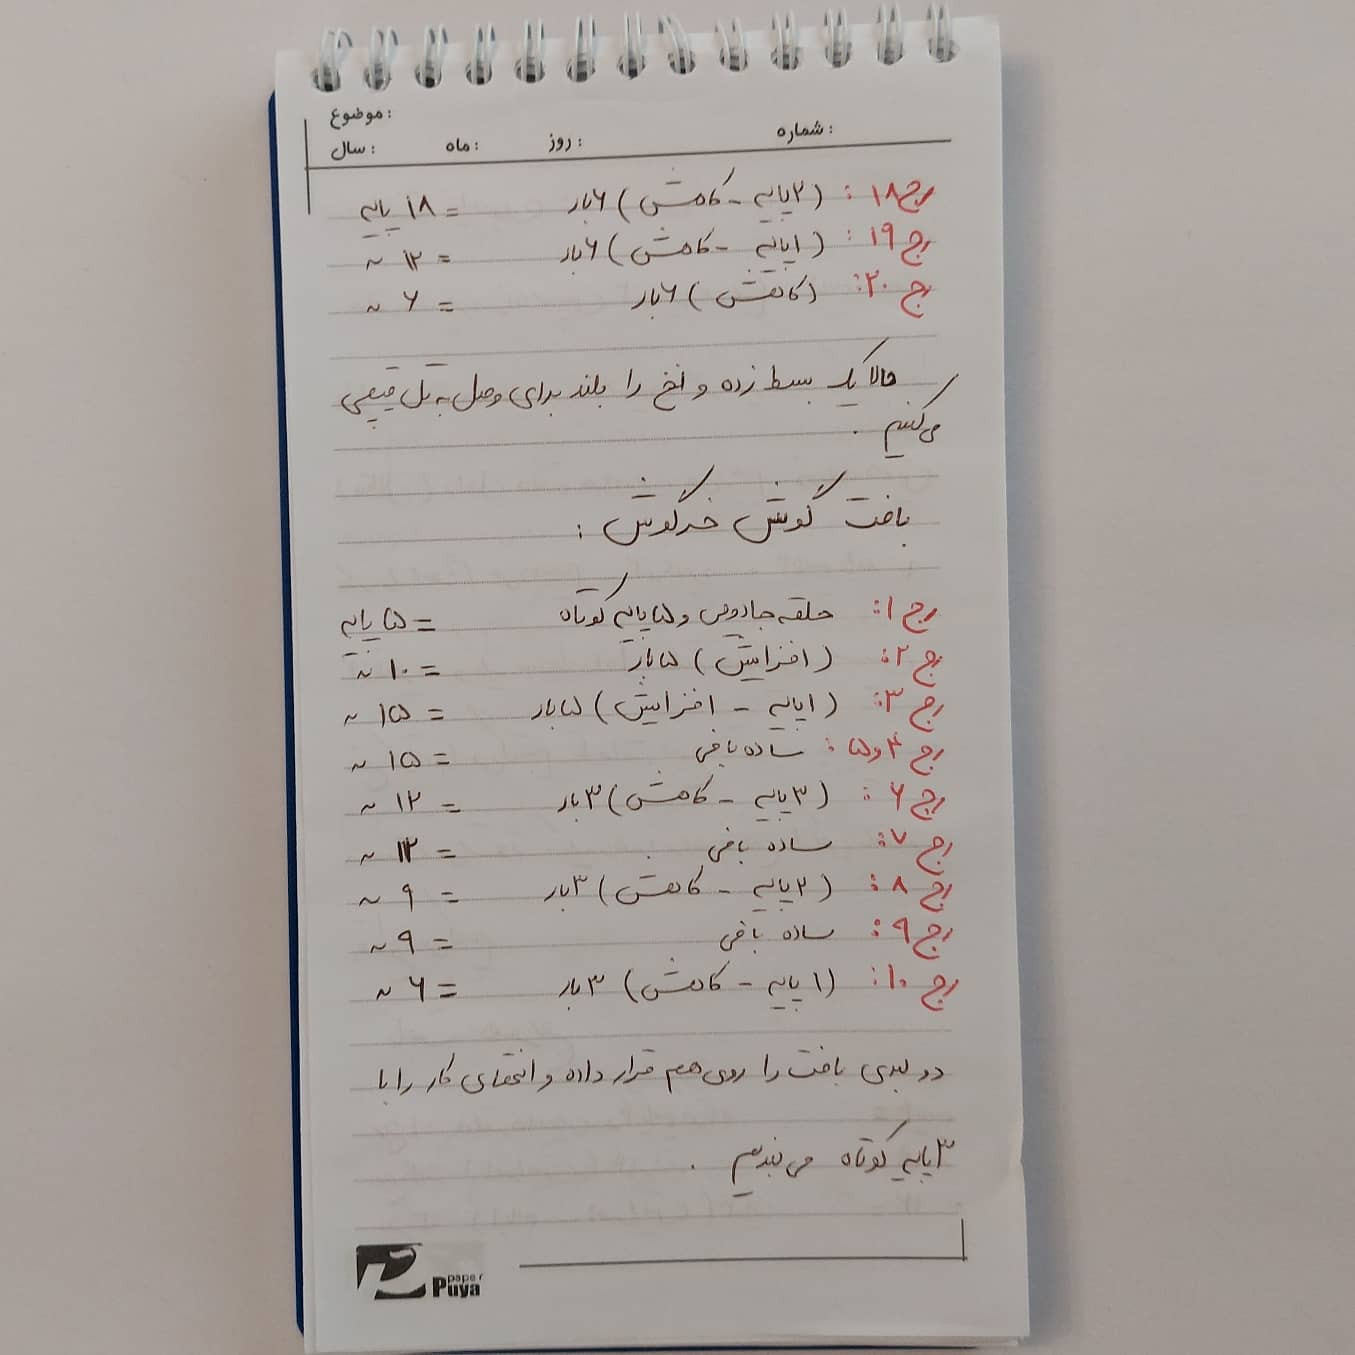 موضوع:
شماره: روز: ماه: سال:
رج ۱۸: (۲پایه - کاهش) ۶بار = ۱۸ پایه
رج ۱۹: (۱پایه - کاهش) ۶بار = ۱۲ ~
رج ۲۰: (کاهش) ۶بار = ۶ ~
حالا یک بسط زده و نخ را بلند برای وصل به تل قیچی
می‌کنیم.
بافت گوش خرگوش:
رج ۱: حلقه جادویی و ۵ پایه کوتاه = ۵ پایه
رج ۲: (افزایش) ۵ بار = ۱۰ ~
رج ۳: (۱پایه - افزایش) ۵ بار = ۱۵ ~
رج ۴ و ۵: ساده بافی = ۱۵ ~
رج ۶: (۳پایه - کاهش) ۳بار = ۱۲ ~
رج ۷: ساده بافی = ۱۲ ~
رج ۸: (۲پایه - کاهش) ۳بار = ۹ ~
رج ۹: ساده بافی = ۹ ~
رج ۱۰: (۱ پایه - کاهش) ۳ بار = ۶ ~
دو لبه‌ی بافت را روی هم قرار داده و انتهای کار را با
۳ پایه کوتاه می‌بندیم.
paper
Puya